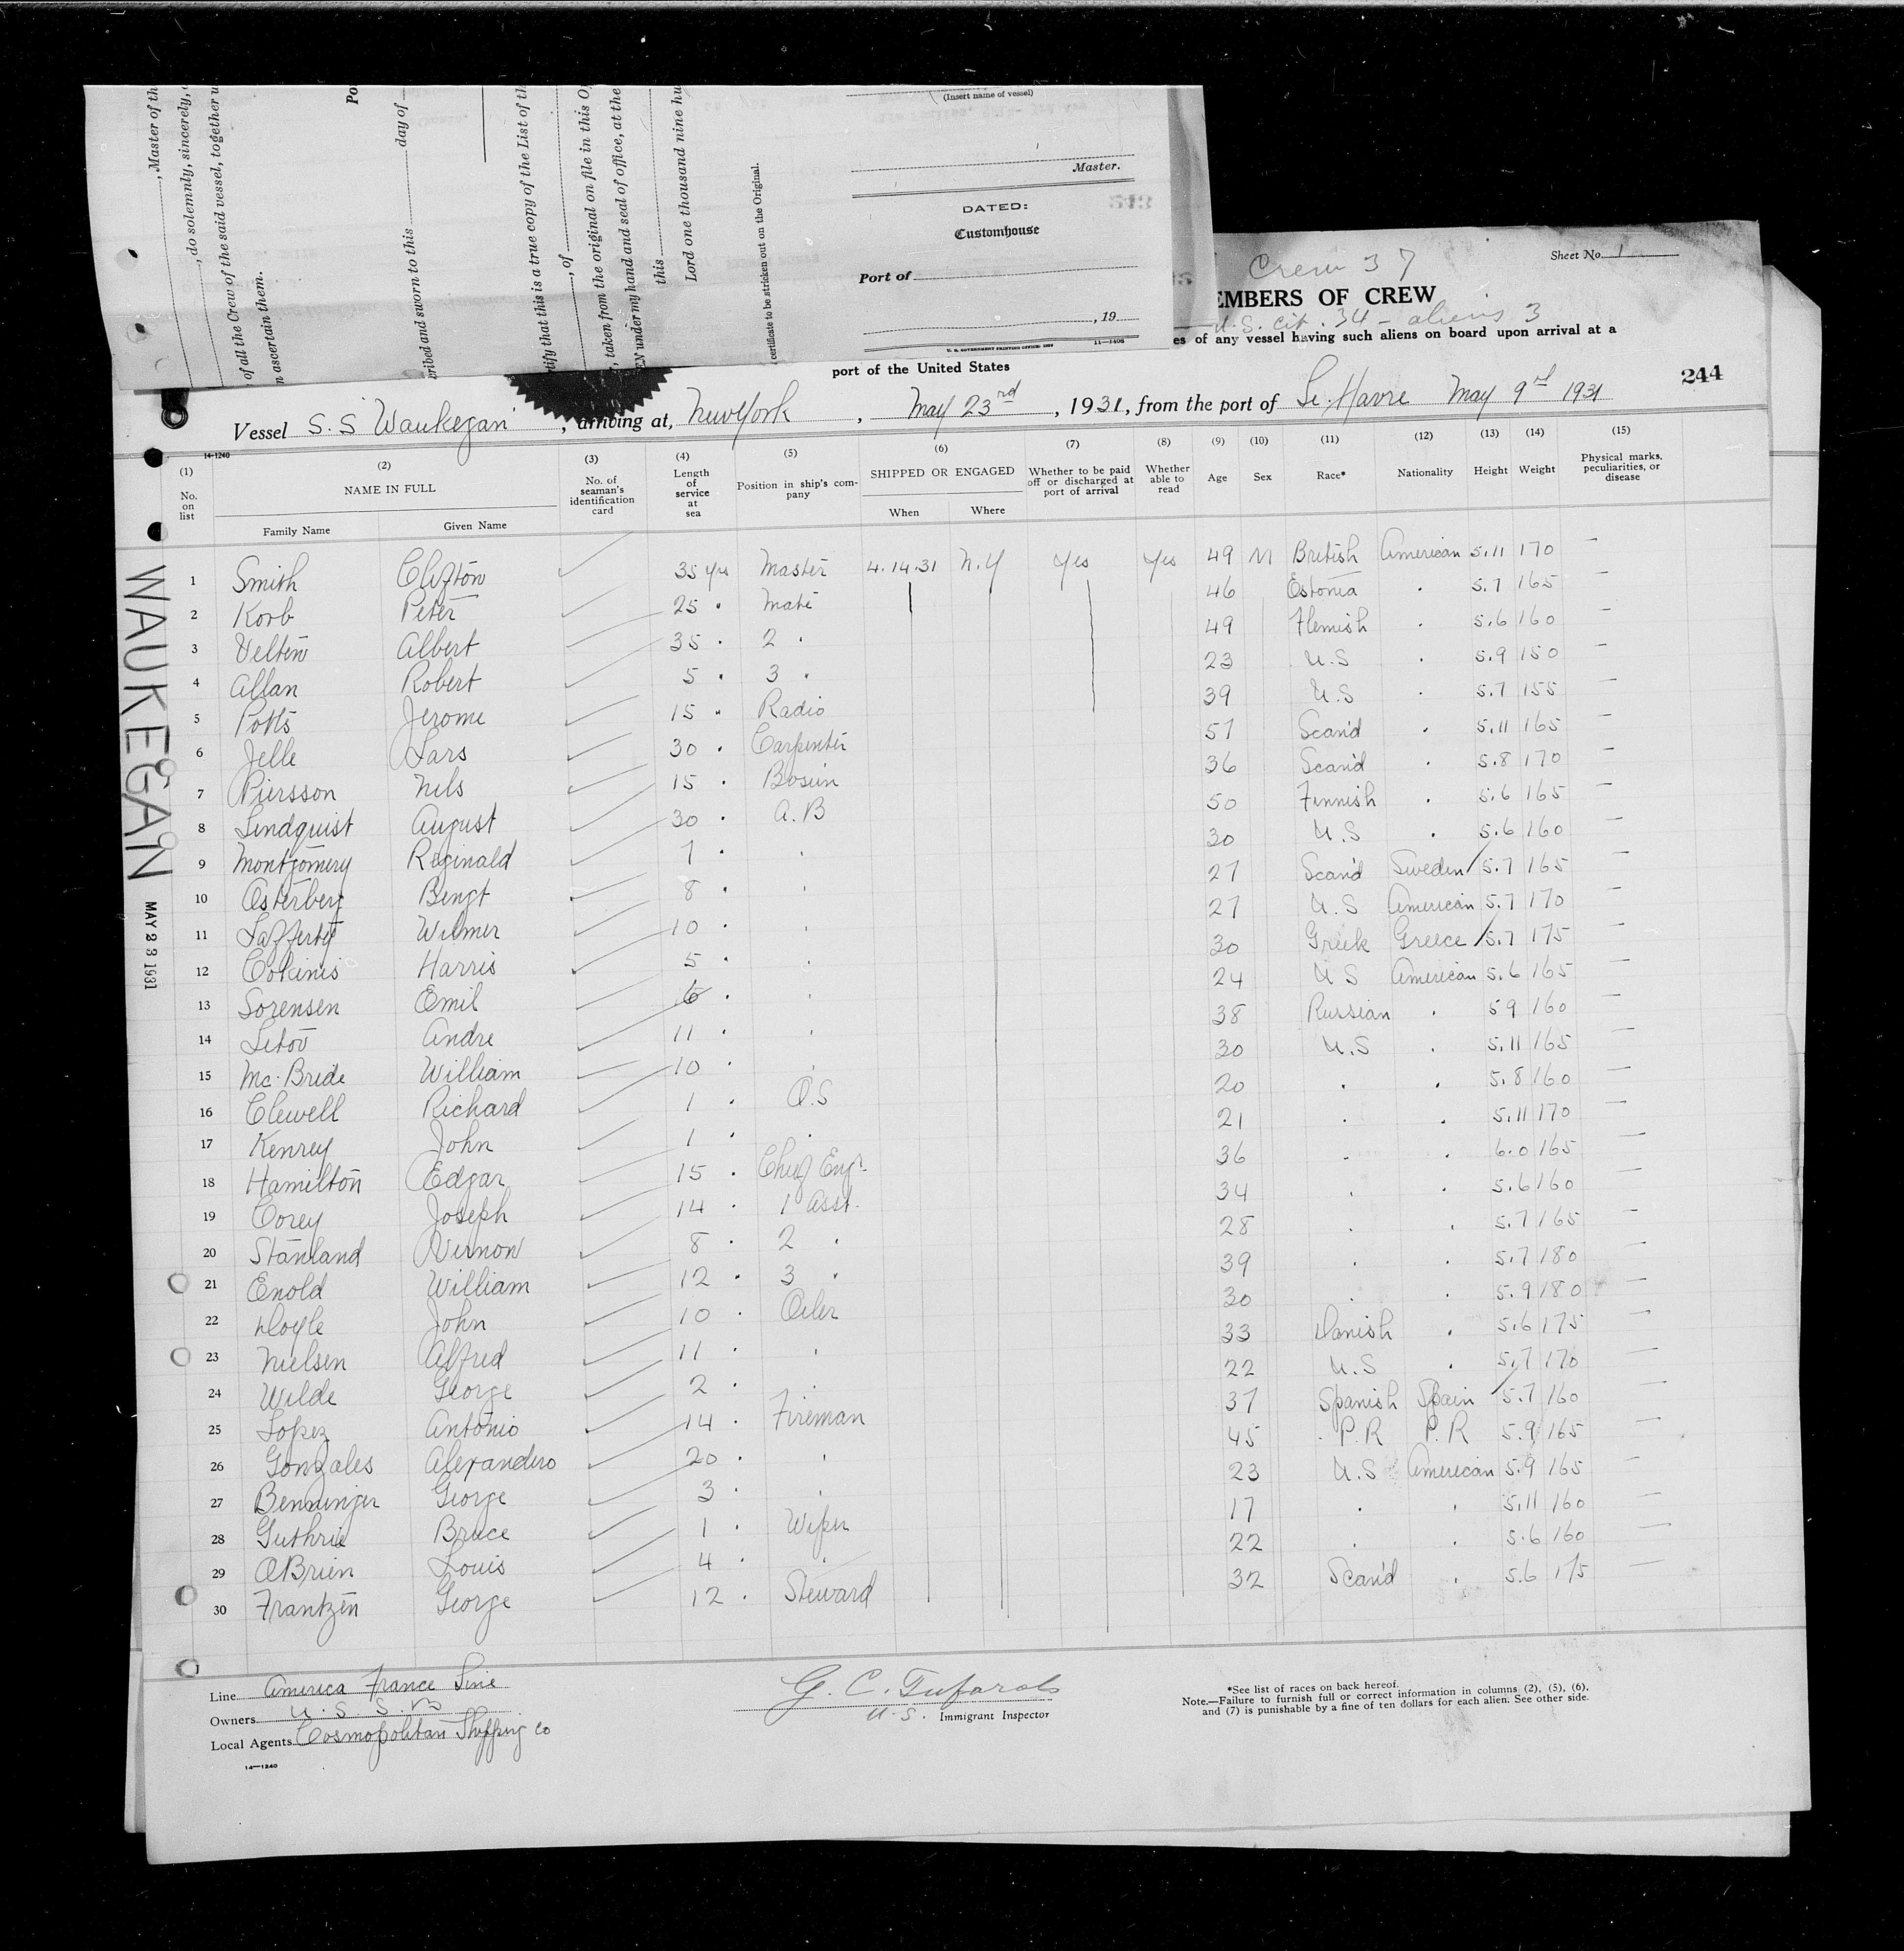 , Master of th
, do solemnly, sincerely,
of all the Crew of the said vessel, together
n ascertain them.
Po
day of
ribed and sworn to this
rtify that this is a true copy of the List of th
, of
, taken from the original on file in this O
EN under my hand and seal of office, at the
this
Lord one thousand nine hu
certificate to be stricken out on the Original.
(Insert name of vessel)
Master.
DATED:
Customhouse
Port of
, 19
U. S. GOVERNMENT PRINTING OFFICE
11—1408
Crew 37
Sheet No. 1
EMBERS OF CREW
U.S. cit. 34 - aliens 3
es of any vessel having such aliens on board upon arrival at a
port of the United States
244
Vessel S.S Waukegan, arriving at, New York, May 23rd, 1931, from the port of Le. Havre May 9rd 1931
14-1240
(1) (2) (3) (4) (5) (6) (7) (8) (9) (10) (11) (12) (13) (14) (15)
No. on list
NAME IN FULL
Family Name
Given Name
No. of seaman's identification card
Length of service at sea
Position in ship's company
SHIPPED OR ENGAGED
When
Where
Whether to be paid off or discharged at port of arrival
Whether able to read
Age
Sex
Race*
Nationality
Height
Weight
Physical marks, peculiarities, or disease
WAUKEGAN
MAY 23 1931
1 Smith Clifton 35 yrs Master 4.14.31 N.Y Yes Yes 49 M British American 5.11 170 —
2 Korb Peter 25 " Mate 46 Estonia " 5.7 165 —
3 Velten Albert 35 " 2 " 49 Flemish " 5.6 160 —
4 Allan Robert 5 " 3 " 23 U.S " 5.9 150 —
5 Potts Jerome 15 " Radio 39 U.S " 5.7 155 —
6 Jelle Lars 30 " Carpenter 57 Scand " 5.11 165 —
7 Piersson Nils 15 " Bosun 36 Scand " 5.8 170 —
8 Lindquist August 30 " A.B 50 Finnish " 5.6 165 —
9 Montgomery Reginald 7 " " 30 U.S " 5.6 160 —
10 Osterberg Bengt 8 " " 27 Scand Sweden 5.7 165 —
11 Lafferty Wilmer 10 " " 27 U.S American 5.7 170 —
12 Cokinis Harris 5 " " 30 Greek Greece 5.7 175 —
13 Sorensen Emil 6 " " 24 U S American 5.6 165 —
14 Litov Andre 11 " " 38 Russian " 5 9 160 —
15 Mc. Bride William 10 " " 30 U.S " 5.11 165 —
16 Clewell Richard 1 " O.S 20 " " 5.8 160 —
17 Kenrey John 1 " " 21 " " 5.11 170 —
18 Hamilton Edgar 15 " Chief Engr. 36 " " 6.0 165 —
19 Corey Joseph 14 " 1 Asst. 34 " " 5.6 160 —
20 Stanland Vernon 8 " 2 " 28 " " 5.7 165 —
21 Enold William 12 " 3 " 39 " " 5.7 180 —
22 Doyle John 10 " Oiler 30 " " 5.9 180 —
23 Nielsen Alfred 11 " " 33 Danish " 5.6 175 —
24 Wilde George 2 " " 22 U.S " 5.7 170 —
25 Lopez Antonio 14 " Fireman 37 Spanish Spain 5.7 160 —
26 Gonzales Alexandero 20 " " 45 P.R P.R 5.9 165 —
27 Benninger George 3 " " 23 U.S American 5.9 165 —
28 Guthrie Bruce 1 " Wiper 17 " " 5.11 160 —
29 OBrien Louis 4 " " 22 " " 5.6 160 —
30 Frantzen George 12 " Steward 32 Scand " 5.6 175 —
Line America France Line
Owners U.S.S.
Local Agents Cosmopolitan Shipping Co
14—1240
U.S. Immigrant Inspector
*See list of races on back hereof.
Note.—Failure to furnish full or correct information in columns (2), (5), (6),
and (7) is punishable by a fine of ten dollars for each alien. See other side.